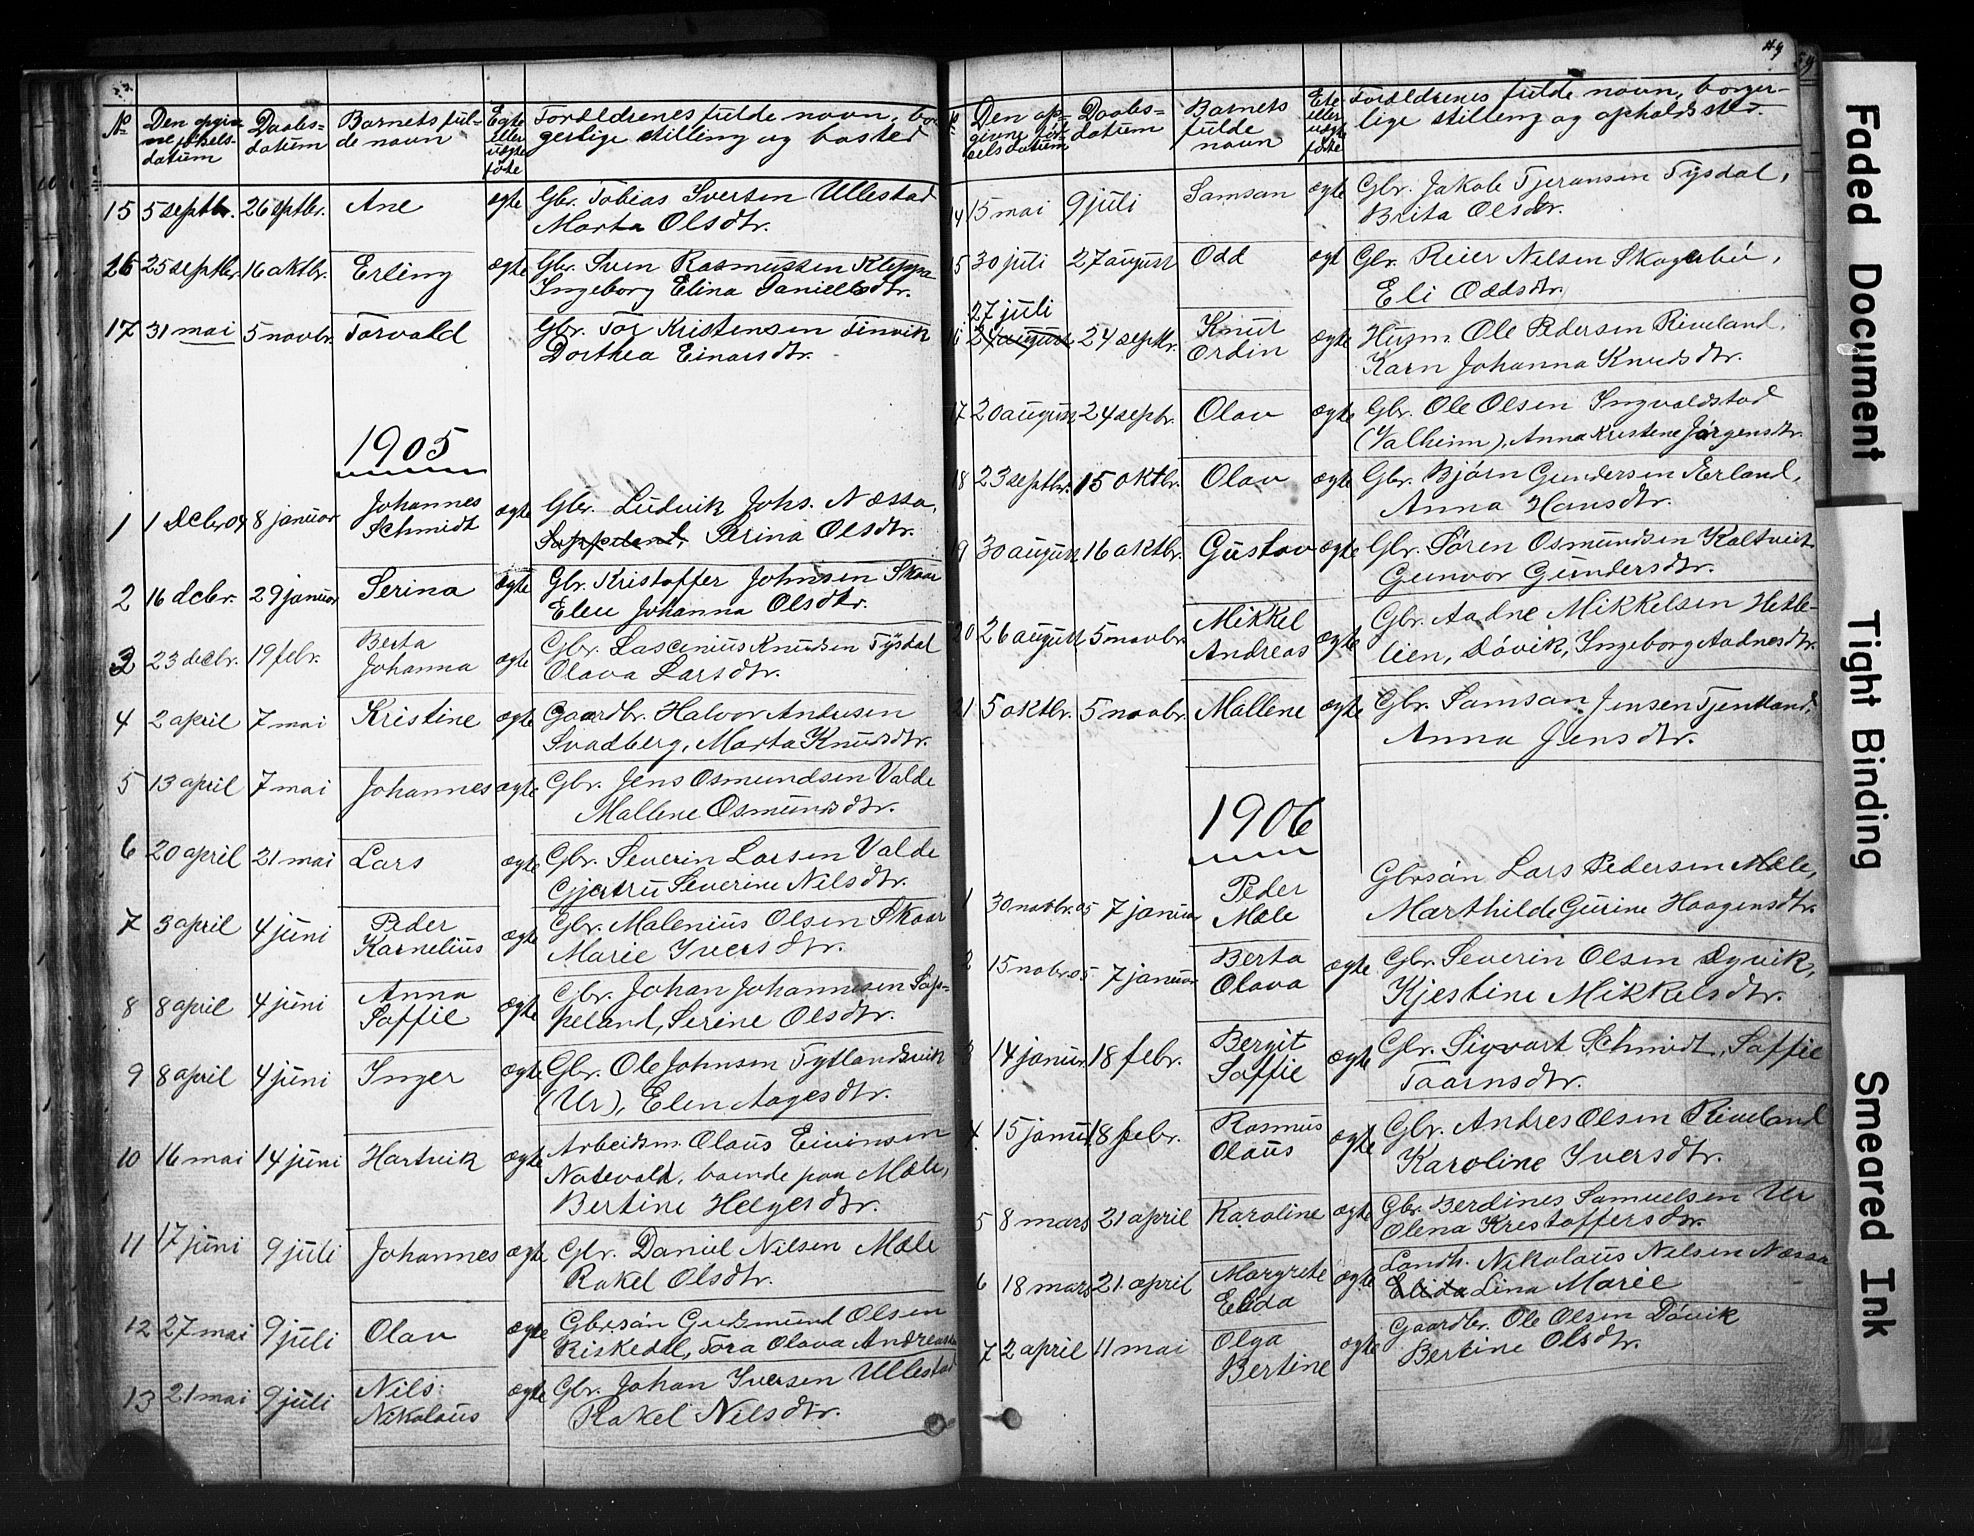 № Den opgivne fødselsdatum Daabsdatum Barnets fulde navn Egte eller uegte føtte Forældrenes fulde navn, borgerlige stilling og bosted
15 5 septbr. 26 septbr. Ane ægte Gbr. Tobias Ivertsen Ullestad
Marta Olsdtr.
16 25 septbr. 16 oktbr. Erling ægte Gbr. Sven Rasmussen Kleppa
Ingeborg Elina Danielsdtr.
17 31 mai 5 novbr. Torvald Gbr. Tor Kristensen Finvik
Dorthea Einarsdtr.
1905
1 1 decbr 04 8 januar Johannes Schmidt ægte Gbr. Ludvik Johs. Næssa,
Soppeland, Serina Olsdtr.
2 16 decbr. 29 januar Serina ægte Gbr. Kristoffer Johnsen Skaar
Elen Johanna Olsdtr.
3 23 decbr. 19 febr. Berta Johanna ægte Gbr. Lascinius Knudsen Tysdal
Olava Larsdtr.
4 2 april 7 mai Kristine ægte Gaardbr. Halvor Andersen
Svadberg, Marta Knudsdtr.
5 13 april 7 mai Johannes ægte Gbr. Jens Osmundsen Valde
Mallene Osmundsdtr.
6 20 april 21 mai Lars ægte Gbr. Severin Larsen Valde
Gjertru Severine Nilsdtr.
7 3 april 4 juni Peder Karnelius ægte Gbr. Malenius Olsen Skaar
Marie Iversdtr.
8 8 april 4 juni Anna Soffie ægte Gbr. Johan Johannesen Sop-
peland, Serine Olsdtr.
9 8 april 4 juni Inger ægte Gbr. Ole Johnsen Tytlandsvik
(Ur), Elen Aagesdtr.
10 16 mai 14 juni Hartvik ægte Arbeidsm. Olaus Eivinsen
Natevald, boende paa Mæle,
Bertine Helgesdtr.
11 17 juni 9 juli Johannes ægte Gbr. Daniel Nilsen Mæle
Rakel Olsdtr.
12 27 mai 9 juli Olav ægte Gbrsøn Gudmund Olsen
Riskedal, Tora Olava
13 21 mai 9 juli Nils Nikolaus ægte Gbr. Johan Iversen Ullestad
Rakel Nilsdtr.
49
№ Den opgivne fødselsdatum Daabsdatum Barnets fulde navn Egte eller uegte føtte Forældrenes fulde navn, borgerlige stilling og opholdssted.
14 15 mai 9 juli Samson ægte Gbr. Jakob Tjeransen Tysdal,
Brita Olsdtr.
15 30 juli 27 august Odd ægt Gbr. Reier Nilsen Skogabø,
Eli Oddsdtr.
16 27 juli 24 august 24 septbr. Knut Ordin ægte Husm. Ole Pedersen Riveland,
Karn Johanna Knudsdtr.
17 20 august 24 septbr. Olav ægte Gbr. Ole Olsen Ingvaldstad
(Valheim), Anna Kristene Jørgensdtr.
18 23 septbr. 15 oktbr. Olav ægte Gbr. Bjørn Gundersen Ærland,
Anna Hansdtr.
19 30 august 16 oktbr. Gustav ægte Gbr. Søren Osmundsen Kaltveit
Gunvor Gundersdtr.
20 26 august 5 novbr. Mikkel Andreas ægte Gbr. Aadne Mikkelsen Hetle-
lien, Døvik, Ingeborg Aadnesdtr.
21 5 oktbr. 5 novbr. Mallene ægte Gbr. Samson Jensen Tjentland,
Anna Jensdtr.
1906
1 30 novbr. 05 7 januar Peder Mæle Gbrsøn Lars Pedersen Mæle,
Marthilde Gurine Haagensdtr.
2 15 nobr. 05 7 januar Berta Olava ægte Gbr. Severin Olsen Dyvik,
Kjestine Mikkelsdtr.
3 14 januar 18 febr. Bergit Soffie ægte Gbr. Sigvart Schmidt, Soffie
Taarnsdtr.
4 15 januar 18 febr. Rasmus Olaus ægte Gbr. Andres Olsen Riveland
Karoline Iversdtr.
5 8 mars 21 april Karoline ægte Gbr. Berdines Samuelsen Ur
Olena Kristoffersdtr.
6 18 mars 21. april Margrete Elida ægte Landh. Nikolaus Nilsen Næssa
Elida Lina Marie
7 2 april 11 mai Olga Bertine ægte Gaardbr. Ole Olsen Døvik
Bertine Olsdtr.
Faded Document
Tight Binding
Smeared Ink